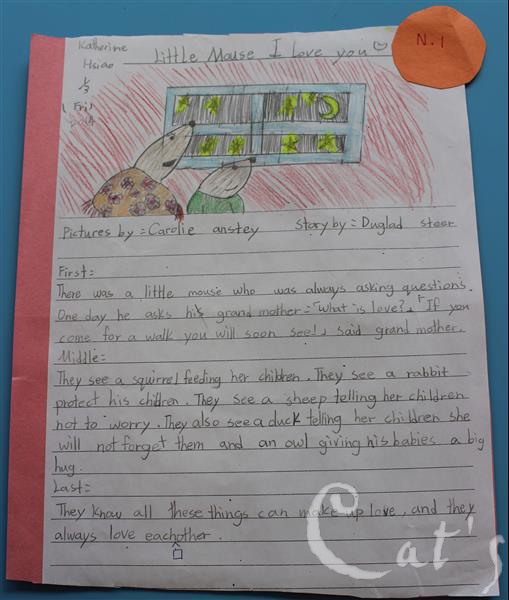 Katherine
Hsiao
1/3
(Fri)
Little Mouse I love you♡
N.1
Pictures by=Carolie anstey Story by=Duglad steer
First:
There was a little mouse who was always asking questions.
One day he asks his grand mother=「What is love?」「If you
come for a walk you will soon see!」 said grand mother.
Middle:
They see a squirrel feeding her children. They see a rabbit
protect his children. They see a sheep telling her children
not to worry. They also see a duck telling her children she
will not forget them and an owl giving his babies a big
hug.
Last=
They know all these things can make up love, and they
always love eachother.
Cat's